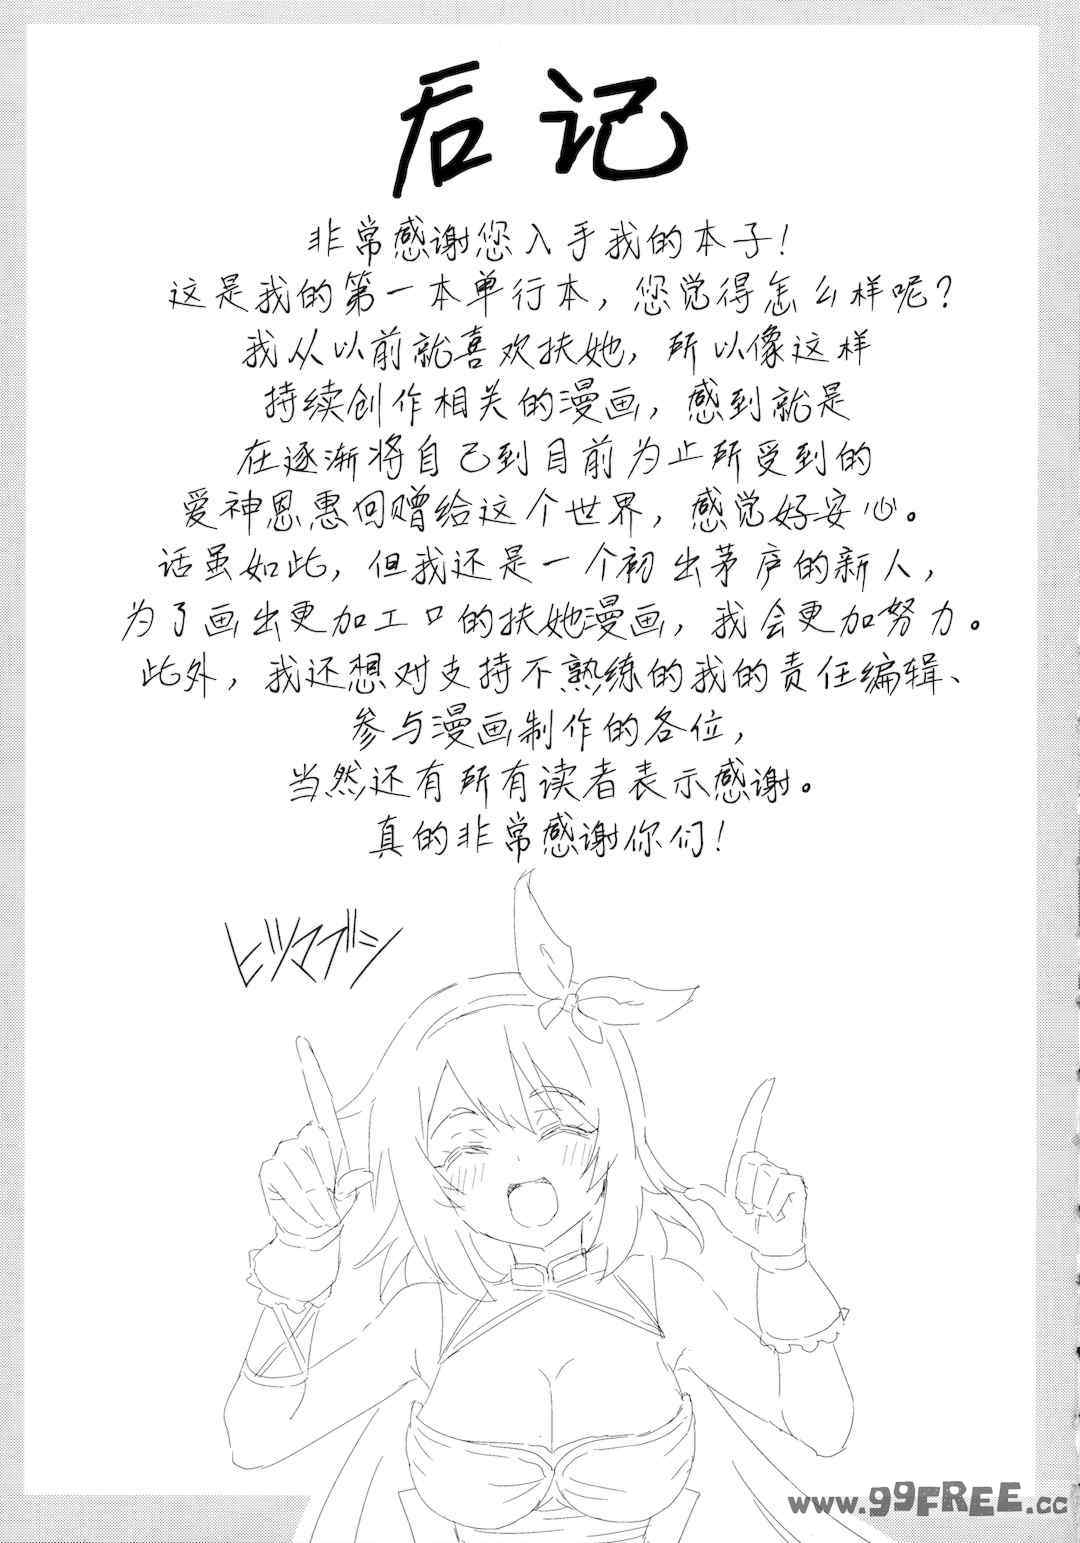 后记
非常感谢您入手我的本子!
这是我的第一本单行本,您觉得怎么样呢?
我从以前就喜欢扶她,所以像这样
持续创作相关的漫画,感到就是
在逐渐将自己到目前为止所受到的
爱神恩惠回赠给这个世界,感觉好安心。
话虽如此,但我还是一个初出茅庐的新人,
为了画出更加工口的扶她漫画,我会更加努力。
此外,我还想对支持不熟练的我的责任编辑、
参与漫画制作的各位,
当然还有所有读者表示感谢。
真的非常感谢你们!
ヒツマブシ
www.99FREE.cc